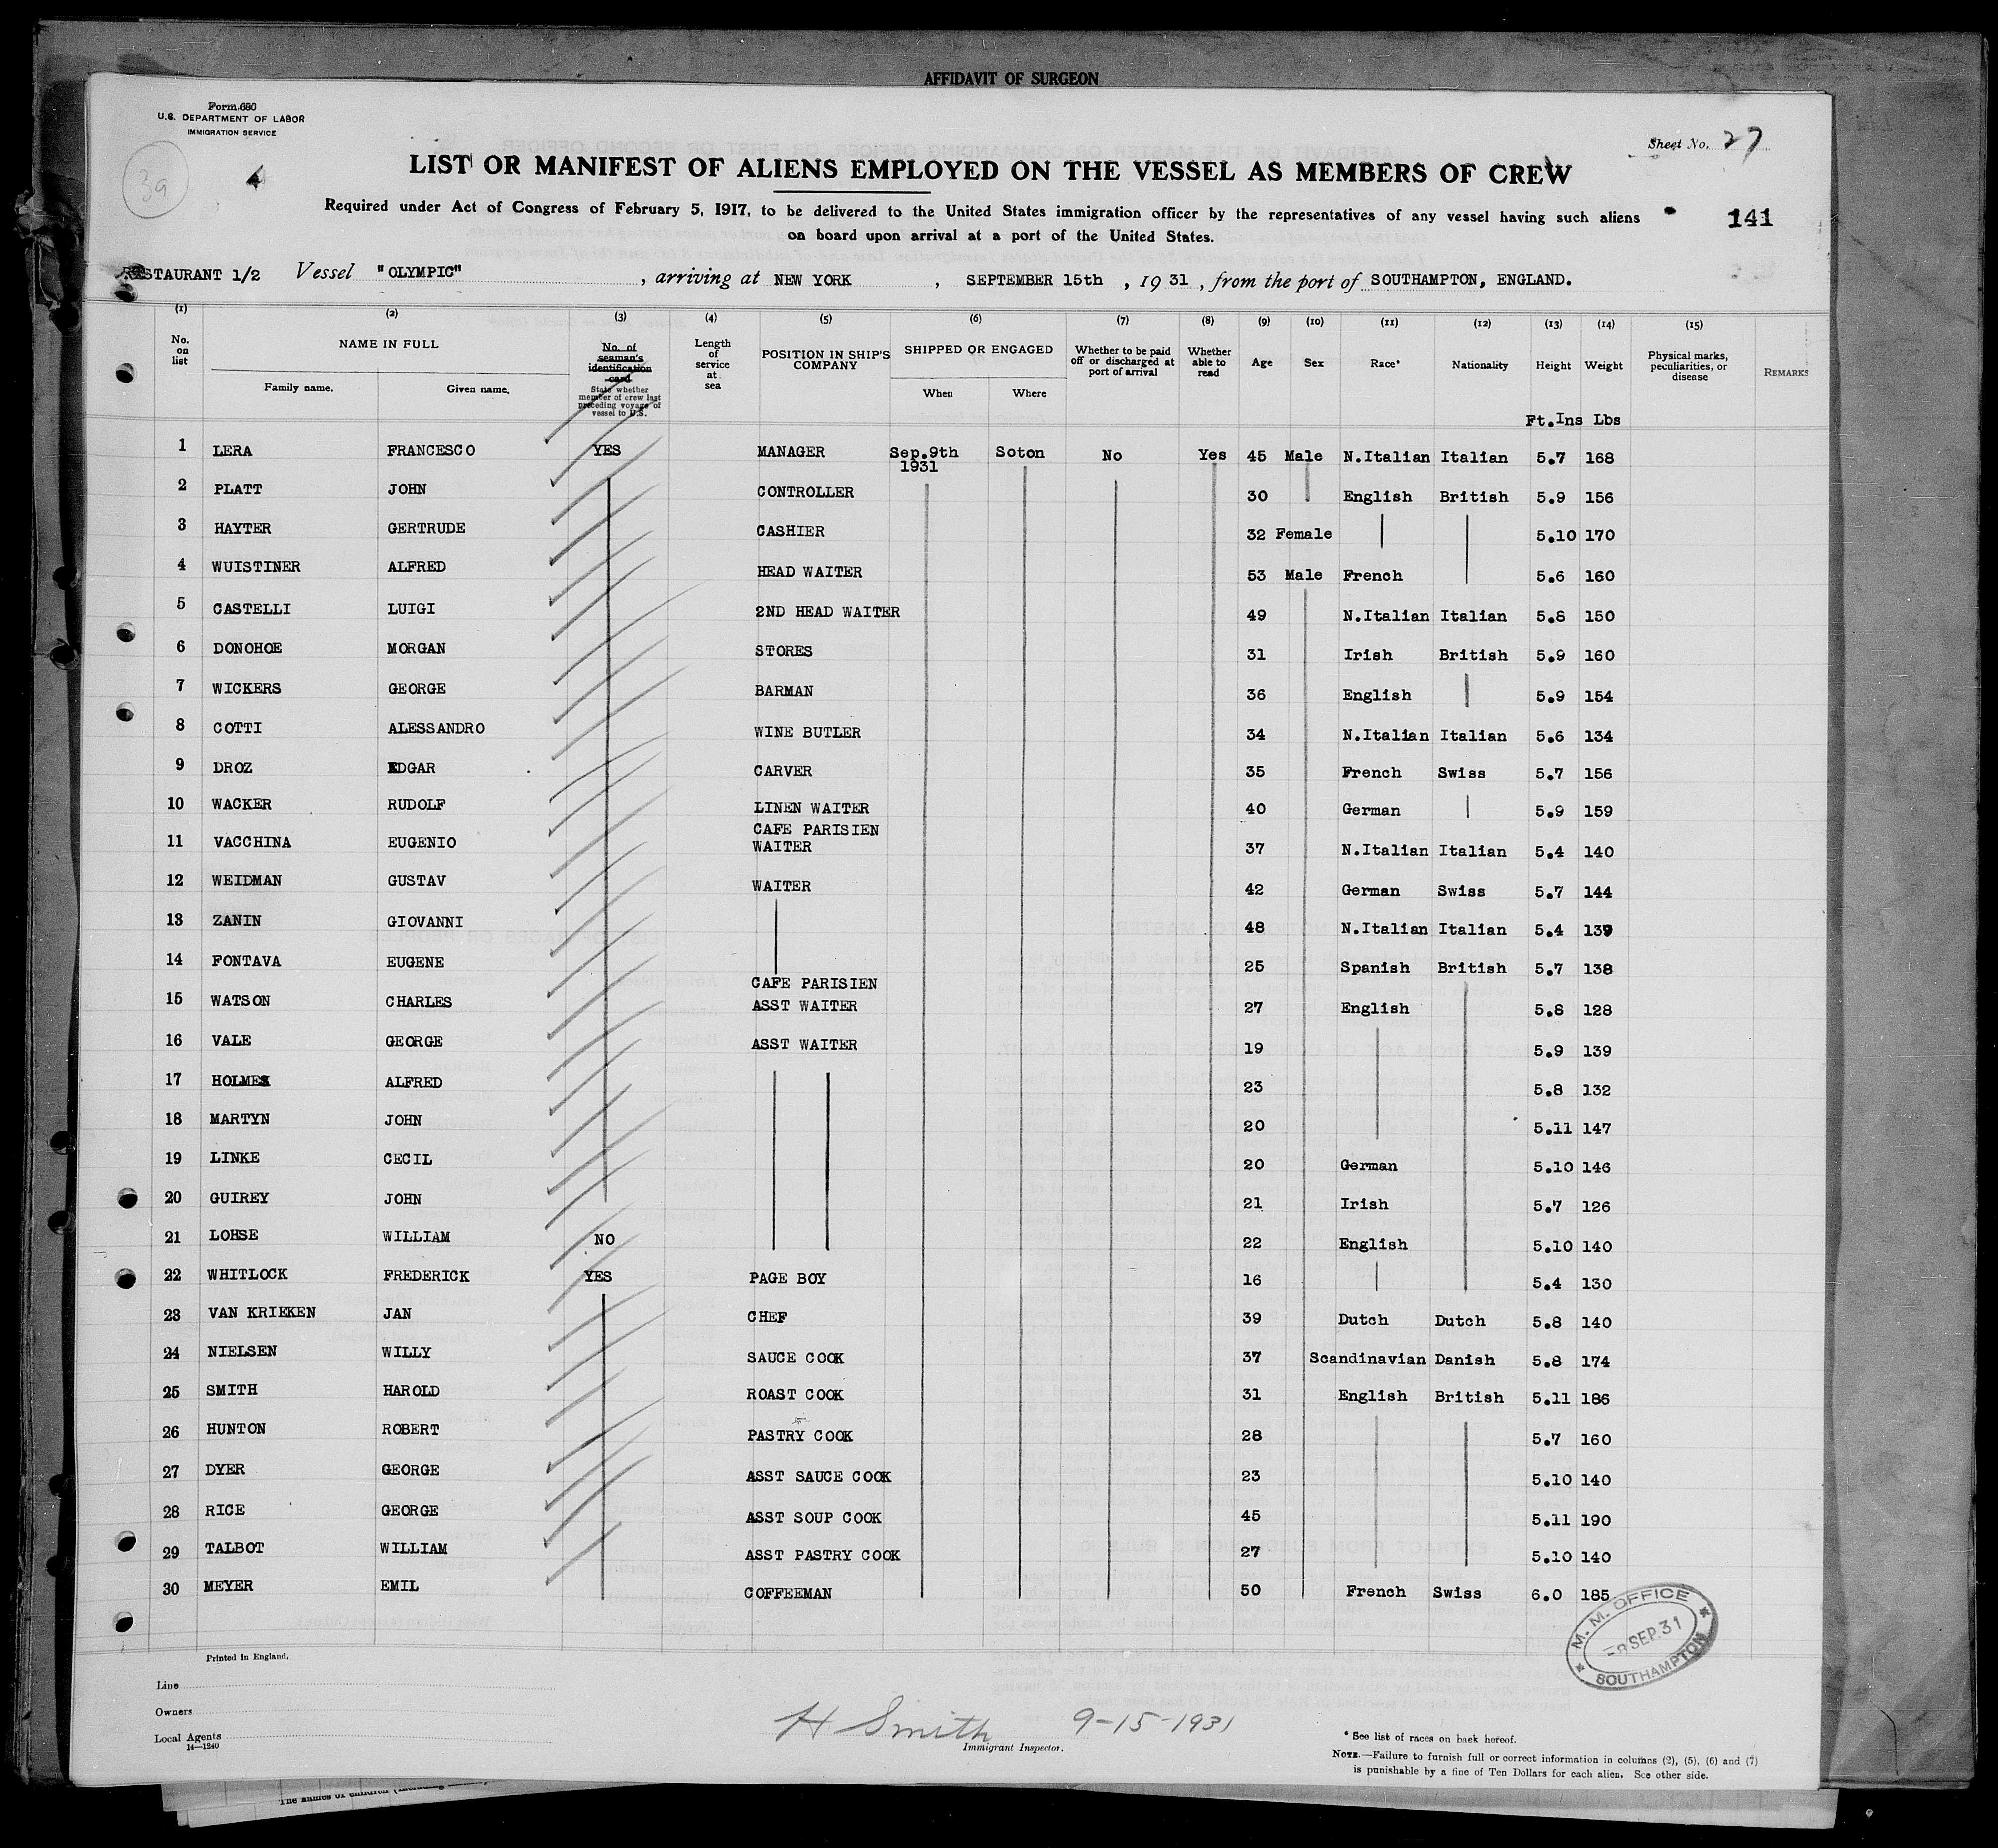 AFFIDAVIT OF SURGEON
Form 680
U.S. DEPARTMENT OF LABOR
IMMIGRATION SERVICE
39
Sheet No. 27
LIST OR MANIFEST OF ALIENS EMPLOYED ON THE VESSEL AS MEMBERS OF CREW
Required under Act of Congress of February 5, 1917, to be delivered to the United States immigration officer by the representatives of any vessel having such aliens
on board upon arrival at a port of the United States.
141
RESTAURANT 1/2 Vessel "OLYMPIC", arriving at NEW YORK, SEPTEMBER 15th, 1931, from the port of SOUTHAMPTON, ENGLAND.
(1) (2) (3) (4) (5) (6) (7) (8) (9) (10) (11) (12) (13) (14) (15)
No. on list
NAME IN FULL
Family name. Given name.
No. of seaman's identification card
State whether member of crew last preceding voyage of vessel to U.S.
Length of service at sea
POSITION IN SHIP'S COMPANY
SHIPPED OR ENGAGED
When Where
Whether to be paid off or discharged at port of arrival
Whether able to read
Age Sex Race* Nationality Height Weight
Physical marks, peculiarities, or disease
REMARKS
Ft.Ins Lbs
1 LERA FRANCESCO YES MANAGER Sep.9th 1931 Soton No Yes 45 Male N.Italian Italian 5.7 168
2 PLATT JOHN CONTROLLER 30 English British 5.9 156
3 HAYTER GERTRUDE CASHIER 32 Female 5.10 170
4 WUISTINER ALFRED HEAD WAITER 53 Male French 5.6 160
5 CASTELLI LUIGI 2ND HEAD WAITER 49 N.Italian Italian 5.8 150
6 DONOHOE MORGAN STORES 31 Irish British 5.9 160
7 WICKERS GEORGE BARMAN 36 English 5.9 154
8 COTTI ALESSANDRO WINE BUTLER 34 N.Italian Italian 5.6 134
9 DROZ EDGAR CARVER 35 French Swiss 5.7 156
10 WACKER RUDOLF LINEN WAITER 40 German 5.9 159
11 VACCHINA EUGENIO CAFE PARISIEN WAITER 37 N.Italian Italian 5.4 140
12 WEIDMAN GUSTAV WAITER 42 German Swiss 5.7 144
13 ZANIN GIOVANNI 48 N.Italian Italian 5.4 139
14 FONTAVA EUGENE 25 Spanish British 5.7 138
15 WATSON CHARLES CAFE PARISIEN ASST WAITER 27 English 5.8 128
16 VALE GEORGE ASST WAITER 19 5.9 139
17 HOLMES ALFRED 23 5.8 132
18 MARTYN JOHN 20 5.11 147
19 LINKE CECIL 20 German 5.10 146
20 GUIREY JOHN 21 Irish 5.7 126
21 LOHSE WILLIAM NO 22 English 5.10 140
22 WHITLOCK FREDERICK YES PAGE BOY 16 5.4 130
23 VAN KRIEKEN JAN CHEF 39 Dutch Dutch 5.8 140
24 NIELSEN WILLY SAUCE COOK 37 Scandinavian Danish 5.8 174
25 SMITH HAROLD ROAST COOK 31 English British 5.11 186
26 HUNTON ROBERT PASTRY COOK 28 5.7 160
27 DYER GEORGE ASST SAUCE COOK 23 5.10 140
28 RICE GEORGE ASST SOUP COOK 45 5.11 190
29 TALBOT WILLIAM ASST PASTRY COOK 27 5.10 140
30 MEYER EMIL COFFEEMAN 50 French Swiss 6.0 185
M. M. OFFICE
SEP. 31
SOUTHAMPTON
Printed in England.
Line
Owners
Local Agents
14—1240
H Smith 9-15-1931
Immigrant Inspector.
* See list of races on back hereof.
NOTE.—Failure to furnish full or correct information in columns (2), (5), (6) and (7)
is punishable by a fine of Ten Dollars for each alien. See other side.